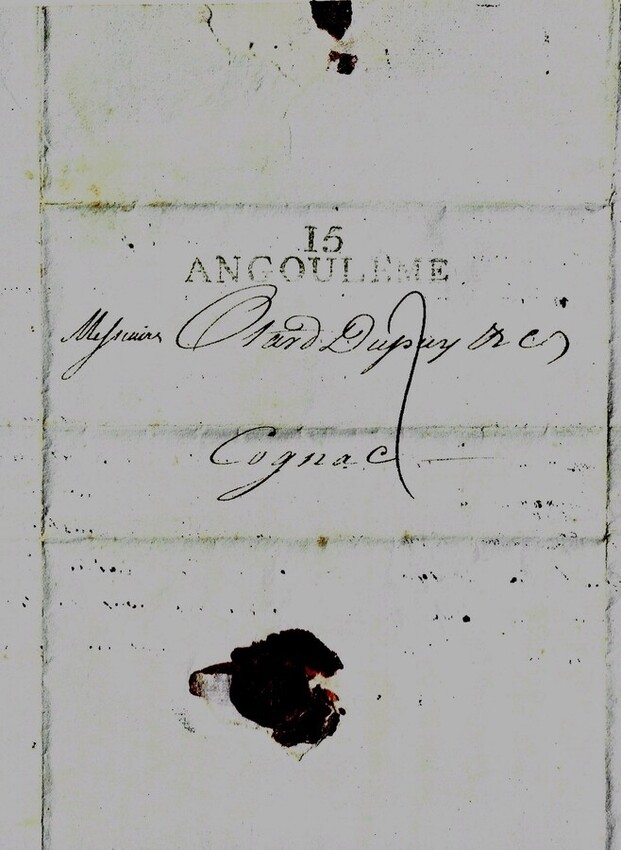 15
ANGOULEME
Messieurs Otard Dupuy & Co
Cognac